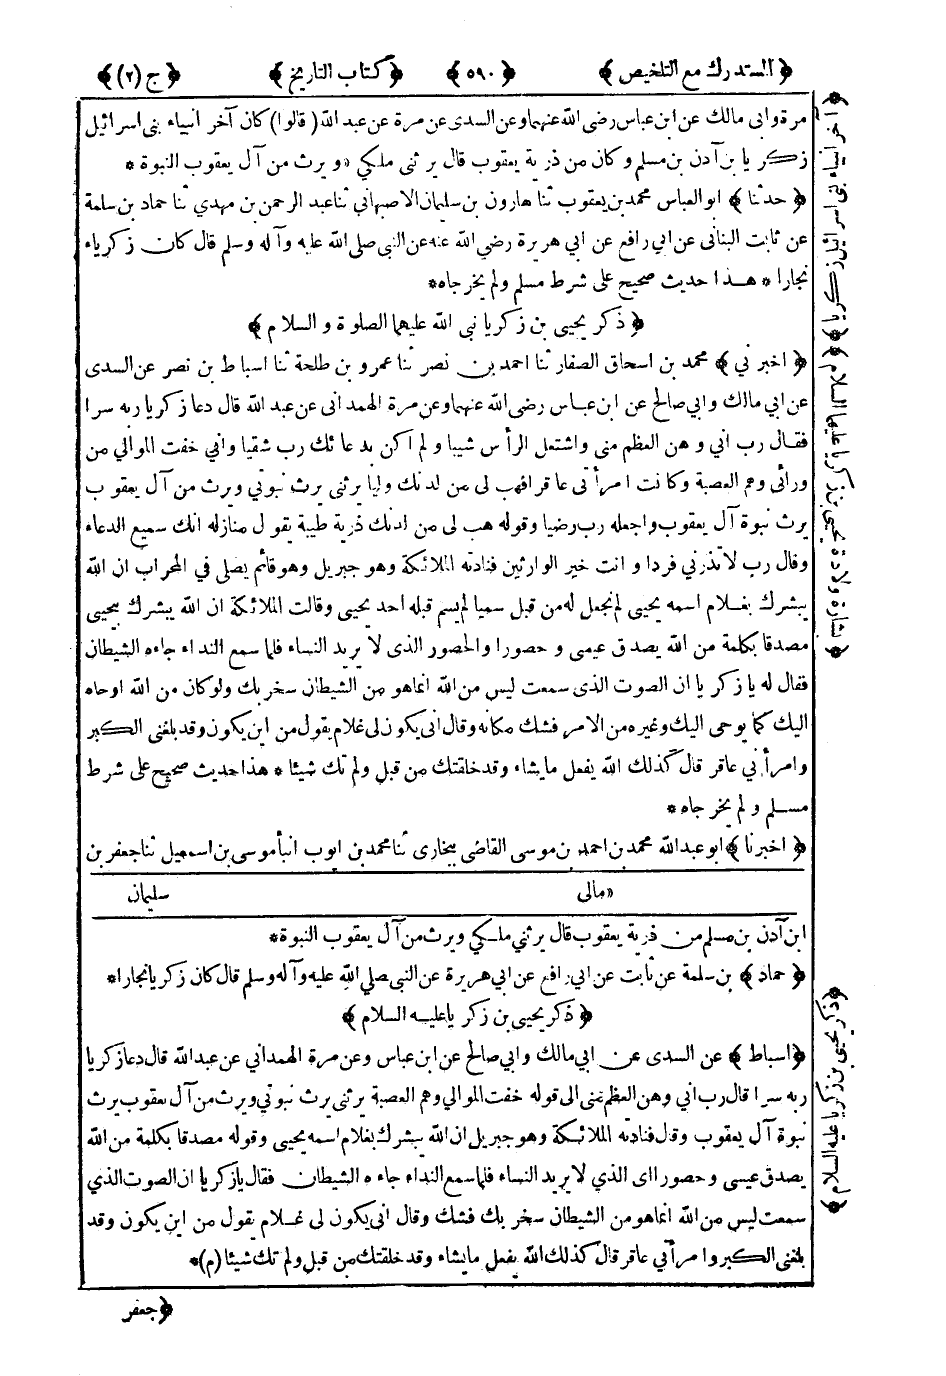 ﴿المستدرك مع التلخيص﴾ ﴿٥٩٠﴾ ﴿كتاب التاريخ﴾ ﴿ج (٢)﴾
مرة وابى مالك عن ابن عباس رضى الله عنهما وعن السدى عن مرة عن عبد الله (قالوا) كان آخر انبياء بنى اسرائيل
زكريا بن آدن بن مسلم وكان من ذرية يعقوب قال يرثنى ملكي ويرث من آل يعقوب النبوة *
﴿حدثنا﴾ ابو العباس محمد بن يعقوب ثنا هارون بن سليمان الاصبهاني ثنا عبد الرحمن بن مهدي ثنا حماد بن سلمة
عن ثابت البنانى عن ابي رافع عن ابي هريرة رضي الله عنه عن النبي صلى الله عليه وآله وسلم قال كان زكرياء
نجارا * هذا حديث صحيح على شرط مسلم ولم يخرجاه *
﴿ذكر يحيى بن زكريا نبي الله عليهما الصلوة والسلام﴾
﴿اخبرني﴾ محمد بن اسحاق الصفار ثنا احمد بن نصر ثنا عمرو بن طلحة ثنا اسباط بن نصر عن السدى
عن ابي مالك وابي صالح عن ابن عباس رضى الله عنهما وعن مرة الهمدانى عن عبد الله قال دعا زكريا ربه سرا
فقال رب اني وهن العظم منى واشتعل الرأس شيبا ولم اكن بدعائك رب شقيا واني خفت الموالي من
ورائى وهم العصبة وكانت امرأتى عاقرا فهب لى من لدنك وليا يرثنى يرث نبوتي ويرث من آل يعقوب
يرث نبوة آل يعقوب واجعله رب رضيا وقوله هب لى من لدنك ذرية طيبة يقول مباركة انك سميع الدعاء
وقال رب لا تذرني فردا وانت خير الوارثين فنادته الملائكة وهو جبريل وهو قائم يصلى في المحراب ان الله
يبشرك بغلام اسمه يحيى لم نجعل له من قبل سميا لم يسم قبله احد يحيى وقالت الملائكة ان الله يبشرك بيحيى
مصدقا بكلمة من الله يصدق عيسى وحصورا والحصور الذى لا يريد النساء فلما سمع النداء جاءه الشيطان
فقال له يا زكريا ان الصوت الذى سمعت ليس من الله انما هو من الشيطان سخر بك ولو كان من الله اوحاه
اليك كما يوحى اليك وغيره من الامر فشك مكانه وقال انى يكون لى غلام يقول من اين يكون وقد بلغنى الكبر
وامرأتي عاقر قال كذلك الله يفعل ما يشاء وقد خلقتك من قبل ولم تك شيئا * هذا حديث صحيح على شرط
مسلم ولم يخرجاه *
﴿اخبرنا﴾ ابو عبد الله محمد بن احمد بن موسى القاضى ببخارى ثنا محمد بن ايوب انبأ موسى بن اسمعيل ثنا جعفر بن
سليمان
ابن آدن بن مسلم من ذرية يعقوب قال يرثني ملكي ويرث من آل يعقوب النبوة *
﴿حماد﴾ بن سلمة عن ثابت عن ابي رافع عن ابي هريرة عن النبي صلي الله عليه وآله وسلم قال كان زكريا نجارا *
﴿ذكر يحيى بن زكريا عليه السلام﴾
﴿اسباط﴾ عن السدى عن ابي مالك وابي صالح عن ابن عباس وعن مرة الهمداني عن عبد الله قال دعا زكريا
ربه سرا قال رب اني وهن العظم منى الى قوله خفت الموالي وهم العصبة يرثني يرث نبوتي ويرث من آل يعقوب يرث
نبوة آل يعقوب وقال فنادته الملائكة وهو جبريل ان الله يبشرك بغلام اسمه يحيى وقوله مصدقا بكلمة من الله
يصدق عيسى وحصورا اى الذي لا يريد النساء فلما سمع النداء جاءه الشيطان فقال يا زكريا ان الصوت الذي
سمعت ليس من الله انما هو من الشيطان سخر بك فشك وقال انى يكون لى غلام يقول من اين يكون وقد
بلغنى الكبر وامرأتي عاقر قال كذلك الله يفعل ما يشاء وقد خلقتك من قبل ولم تك شيئا (م) *
﴿جعفر
﴿آخر انبياء بني اسرائيل زكريا﴾
﴿بشارة ولادة يحيى بن زكريا عليهما السلام﴾
﴿ذكر يحيى بن زكريا عليه السلام﴾